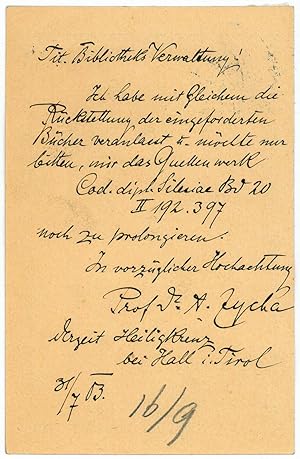 Tit. Bibliotheks Verwaltung!
Ich habe mit Gleichem die
Rückstellung der eingeforderten
Bücher veranlasst u. möchte nur
bitten, mir das Quellenwerk
Cod. dipl. Silesiae Bd 20
II 192.397
noch zu prolongieren.
In vorzüglicher Hochachtung
Prof Dr A. Zycha
derzeit Heiligkreuz
bei Hall i. Tirol
31/7 13.
16/9